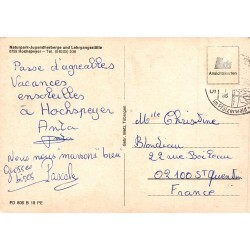 Naturpark-Jugendherberge und Lehrgangsstätte
6755 Hochspeyer – Tel.
Passe d'agréables
Vacances
ensoleillées
à Hochspeyer
Anta
Nous nous marrons bien
Grosses
bises Pascale
PD 606 B 19 PE
Ansichtskarten
Melle Christine
Blondiau
22 rue Boileau
02100 St Quentin
France